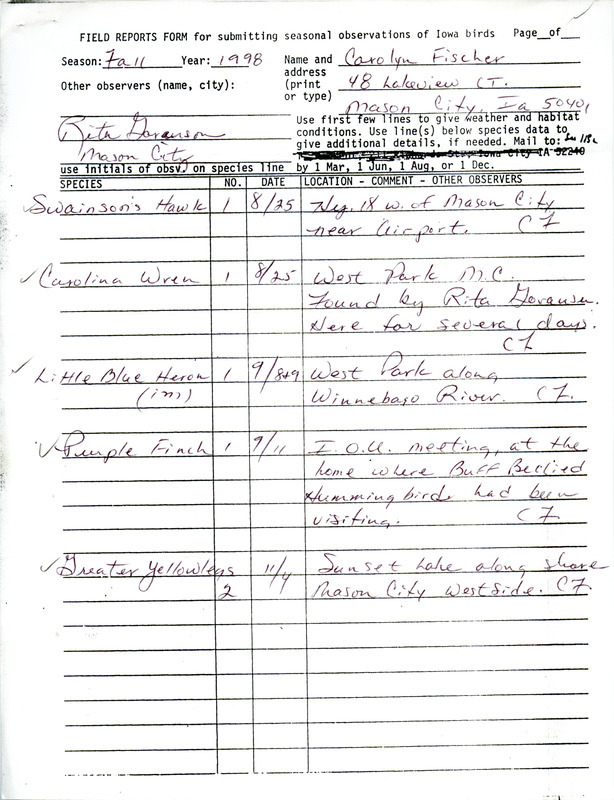 FIELD REPORTS FORM for submitting seasonal observations of Iowa birds Page__of__
Season: Fall Year: 1998 Name and address (print or type) Carolyn Fischer
48 Lakeview CT.
Mason City, Ia 50401
Other observers (name, city):
Rita Goranson
Mason City
use initials of obsv. on species line
Use first few lines to give weather and habitat
conditions. Use line(s) below species data to
give additional details, if needed. Mail to:
by 1 Mar, 1 Jun, 1 Aug, or 1 Dec.
SPECIES NO. DATE LOCATION - COMMENT - OTHER OBSERVERS
Swainson's Hawk 1 8/25 Hy. 18 w. of Mason City
near Airport. CF
✓Carolina Wren 1 8/25 West Park M.C.
Found by Rita Goranson.
Here for several days.
CF
✓Little Blue Heron 1 9/8+9 West Park along
(im) Winnebago River. CF.
✓Purple Finch 1 9/11 I.O.U. meeting, at the
home where Buff Bellied
Hummingbird had been
visiting. CF
✓Greater Yellowlegs 11/4 Sunset Lake along shore
2 Mason City West Side. CF.